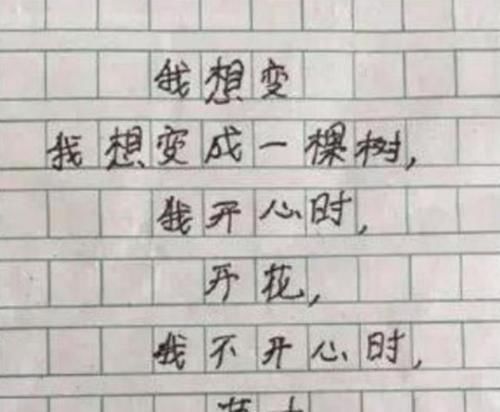 我想变
我想变成一棵树，
我开心时，
开花，
我不开心时，